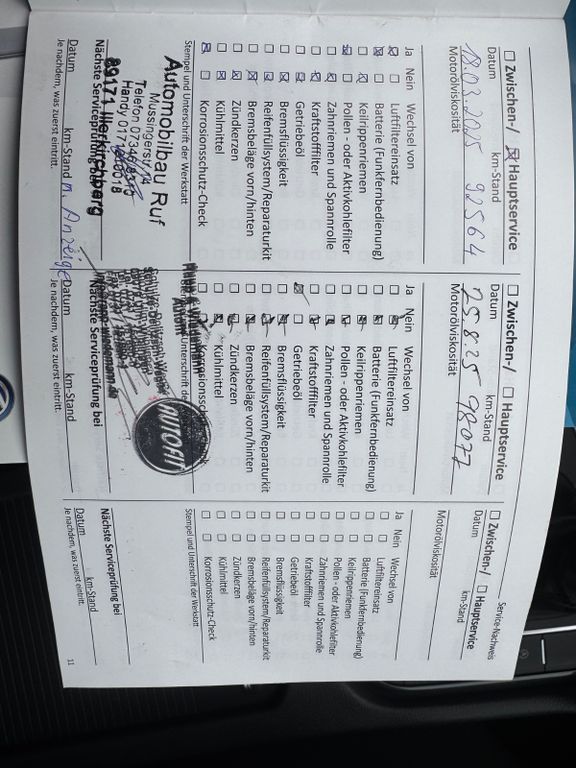 Service-Nachweis
☐ Zwischen-/ ☒ Hauptservice
Datum km-Stand
18.03.2025 92564
Motorölviskosität
Ja Nein Wechsel von
Luftfiltereinsatz
Batterie (Funkfernbedienung)
Keilrippenriemen
Pollen - oder Aktivkohlefilter
Zahnriemen und Spannrolle
Kraftstofffilter
Getriebeöl
Bremsflüssigkeit
Reifenfüllsystem/Reparaturkit
Bremsbeläge vorn/hinten
Zündkerzen
Kühlmittel
Korrosionsschutz-Check
Stempel und Unterschrift der Werkstatt
Automobilbau Ruf
Mussingerstr. 14
Telefon 07346
Handy 017
89171 Illerkirchberg
Nächste Serviceprüfung bei
Datum km-Stand n. Anzeige
Je nachdem, was zuerst eintritt.
☐ Zwischen-/ ☐ Hauptservice
Datum km-Stand
25.8.25 98077
Motorölviskosität
Ja Nein Wechsel von
Luftfiltereinsatz
Batterie (Funkfernbedienung)
Keilrippenriemen
Pollen - oder Aktivkohlefilter
Zahnriemen und Spannrolle
Kraftstofffilter
Getriebeöl
Bremsflüssigkeit
Reifenfüllsystem/Reparaturkit
Bremsbeläge vorn/hinten
Zündkerzen
Kühlmittel
Unterschrift der
AUTOFIT
Nächste Serviceprüfung bei
Datum km-Stand
Je nachdem, was zuerst eintritt.
☐ Zwischen-/ ☐ Hauptservice
Datum km-Stand
Motorölviskosität
Ja Nein Wechsel von
☐ ☐ Luftfiltereinsatz
☐ ☐ Batterie (Funkfernbedienung)
☐ ☐ Keilrippenriemen
☐ ☐ Pollen - oder Aktivkohlefilter
☐ ☐ Zahnriemen und Spannrolle
☐ ☐ Kraftstofffilter
☐ ☐ Getriebeöl
☐ ☐ Bremsflüssigkeit
☐ ☐ Reifenfüllsystem/Reparaturkit
☐ ☐ Bremsbeläge vorn/hinten
☐ ☐ Zündkerzen
☐ ☐ Kühlmittel
☐ ☐ Korrosionsschutz-Check
Stempel und Unterschrift der Werkstatt
Nächste Serviceprüfung bei
Datum km-Stand
Je nachdem, was zuerst eintritt.
11